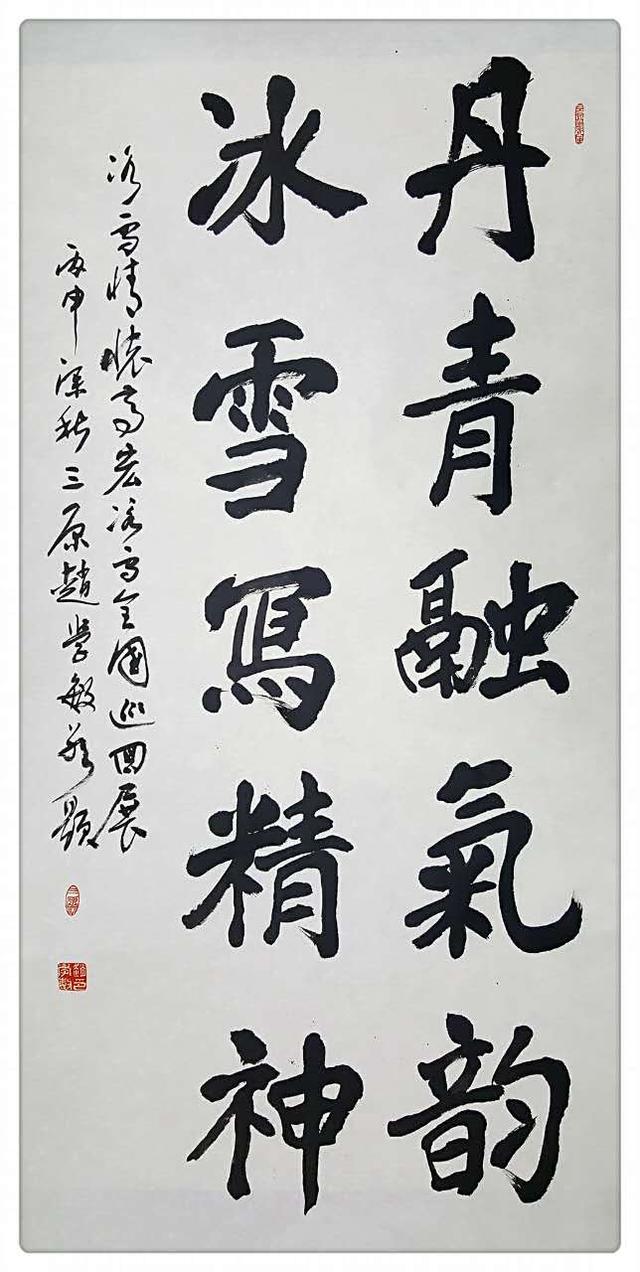 丹青融氣韵
冰雪寫精神
冰雪情懷高宏冰雪全國巡回展
丙申深秋三原趙学敏敬題